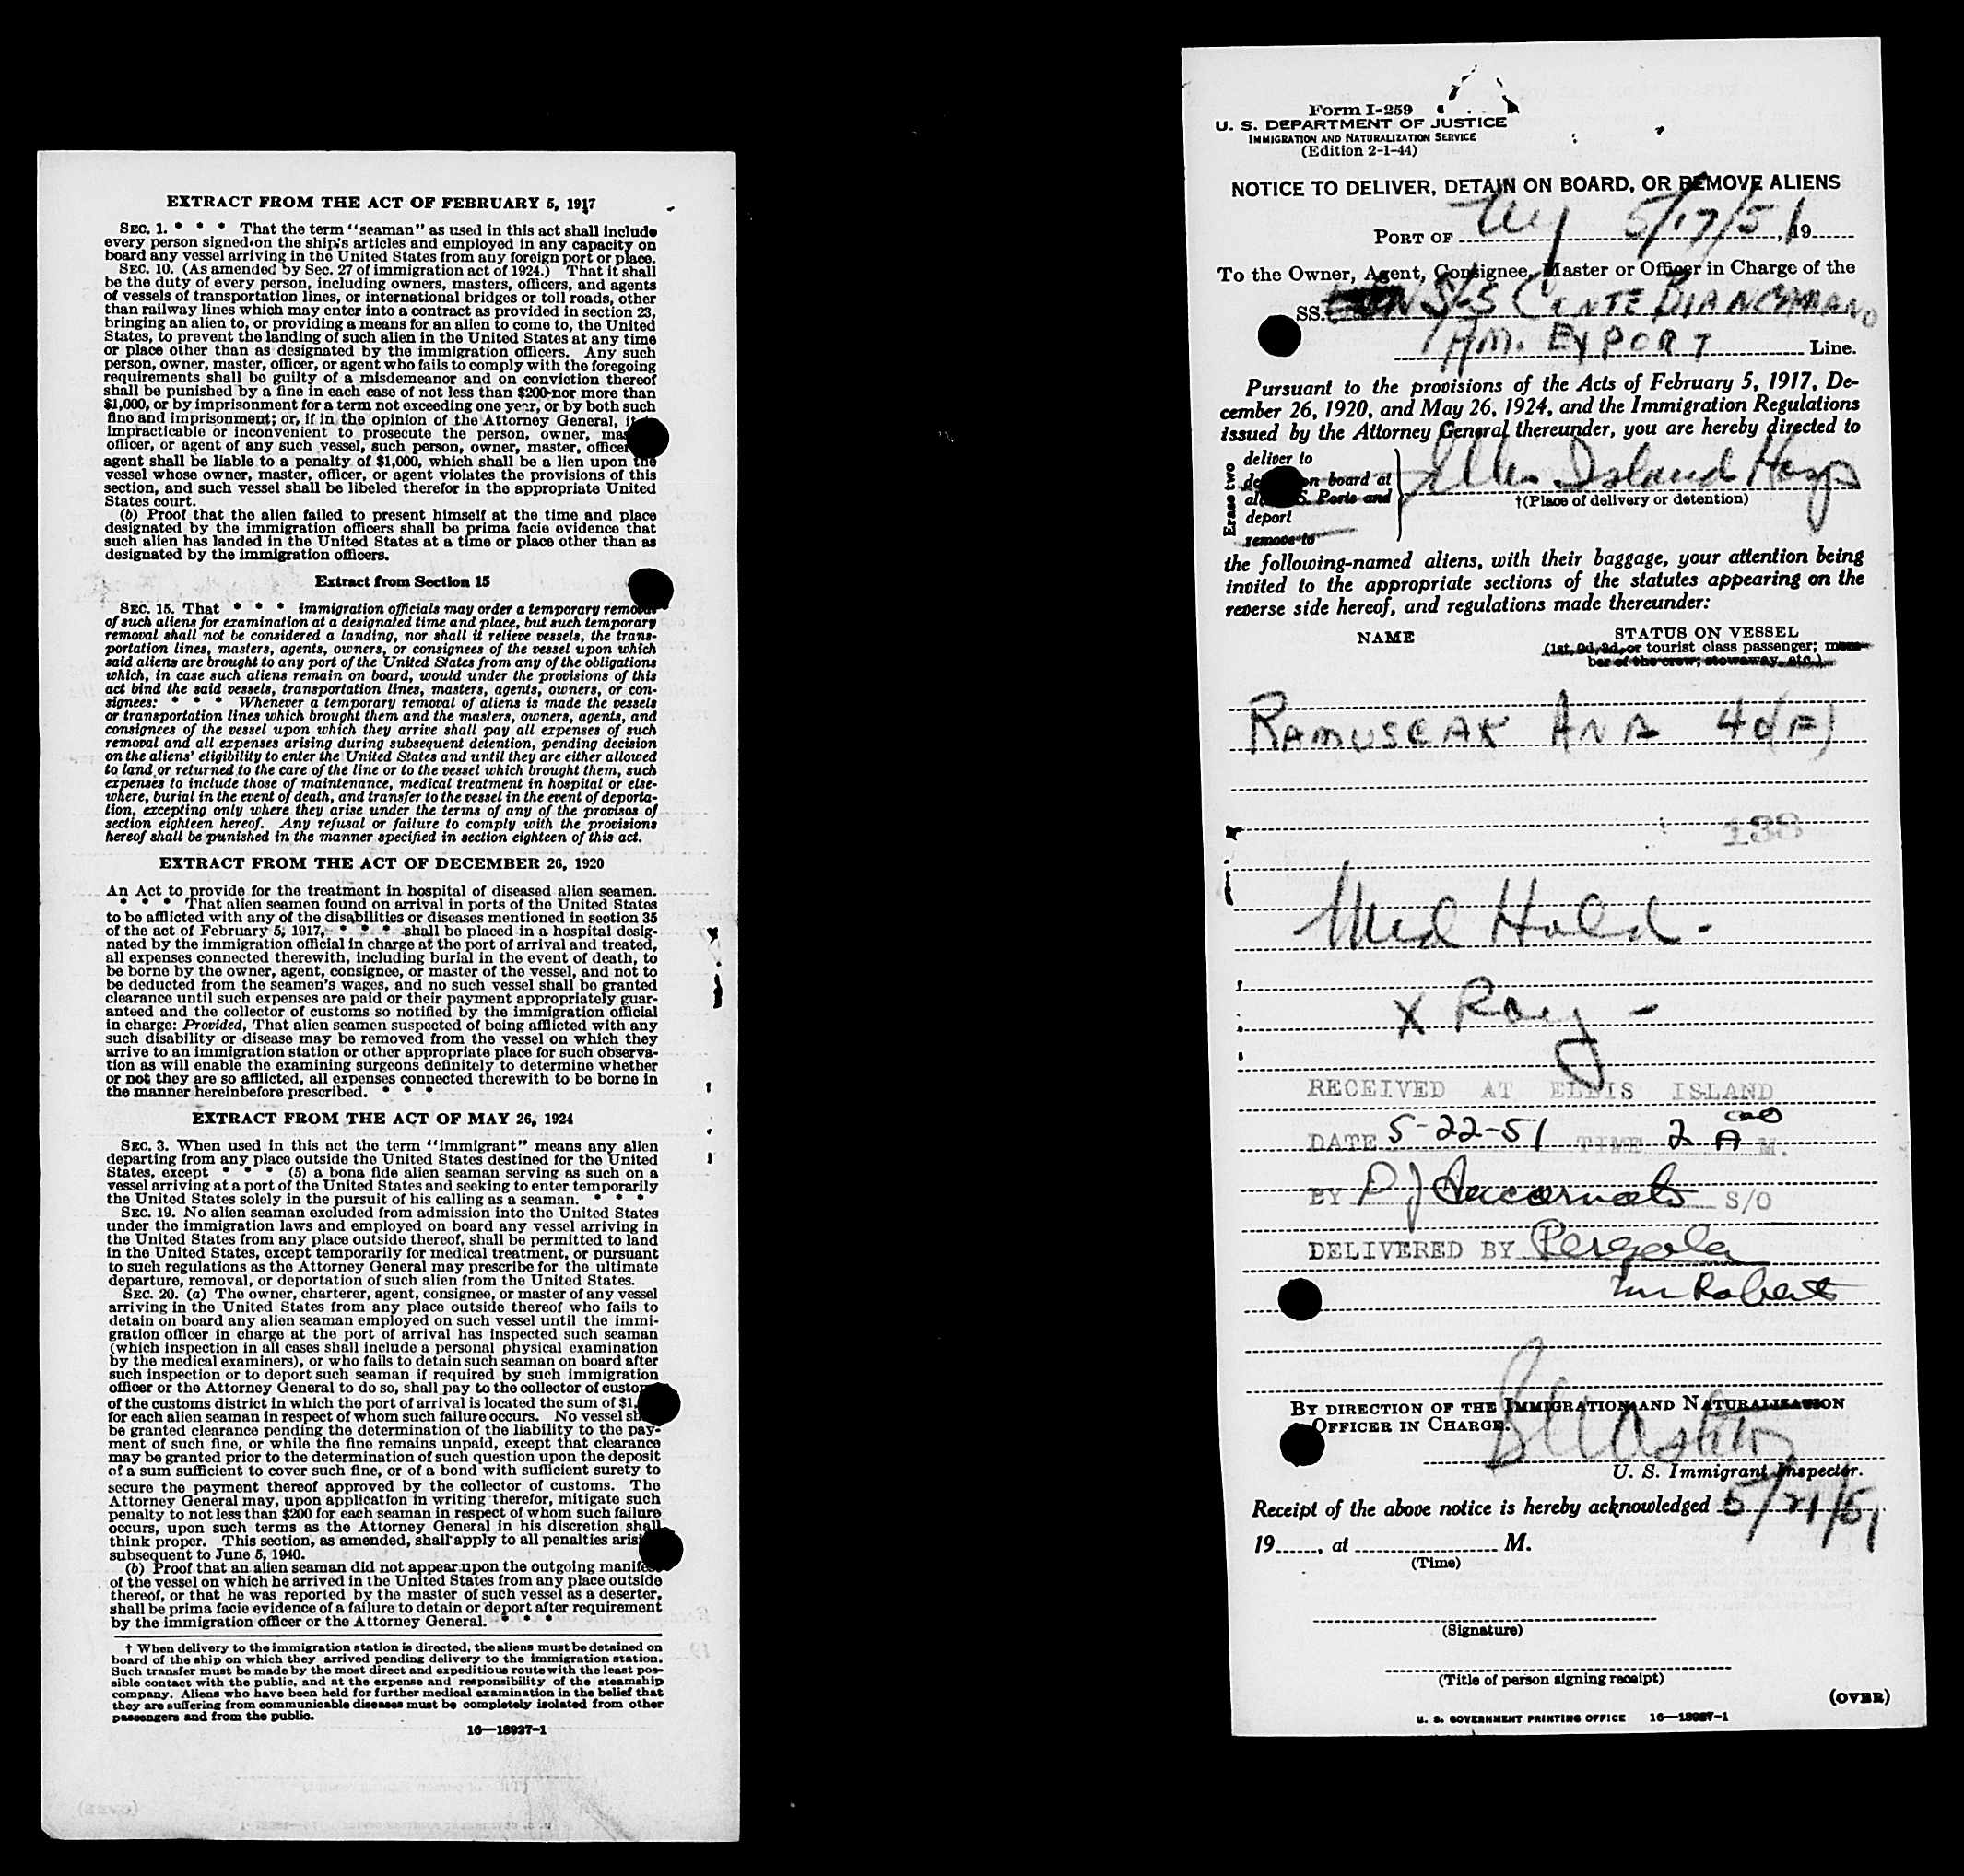 EXTRACT FROM THE ACT OF FEBRUARY 5, 1917
SEC. 1. * * * That the term "seaman" as used in this act shall include
every person signed on the ship's articles and employed in any capacity on
board any vessel arriving in the United States from any foreign port or place.
SEC. 10. (As amended by Sec. 27 of immigration act of 1924.) That it shall
be the duty of every person, including owners, masters, officers, and agents
of vessels of transportation lines, or international bridges or toll roads, other
than railway lines which may enter into a contract as provided in section 23,
bringing an alien to, or providing a means for an alien to come to, the United
States, to prevent the landing of such alien in the United States at any time
or place other than as designated by the immigration officers. Any such
person, owner, master, officer, or agent who fails to comply with the foregoing
requirements shall be guilty of a misdemeanor and on conviction thereof
shall be punished by a fine in each case of not less than $200 nor more than
$1,000, or by imprisonment for a term not exceeding one year, or by both such
fine and imprisonment; or, if in the opinion of the Attorney General, it
impracticable or inconvenient to prosecute the person, owner, mas
officer, or agent of any such vessel, such person, owner, master, officer
agent shall be liable to a penalty of $1,000, which shall be a lien upon the
vessel whose owner, master, officer, or agent violates the provisions of this
section, and such vessel shall be libeled therefor in the appropriate United
States court.
(b) Proof that the alien failed to present himself at the time and place
designated by the immigration officers shall be prima facie evidence that
such alien has landed in the United States at a time or place other than as
designated by the immigration officers.
Extract from Section 15
SEC. 15. That * * * immigration officials may order a temporary removal
of such aliens for examination at a designated time and place, but such temporary
removal shall not be considered a landing, nor shall it relieve vessels, the trans-
portation lines, masters, agents, owners, or consignees of the vessel upon which
said aliens are brought to any port of the United States from any of the obligations
which, in case such aliens remain on board, would under the provisions of this
act bind the said vessels, transportation lines, masters, agents, owners, or con-
signees: * * * Whenever a temporary removal of aliens is made the vessels
or transportation lines which brought them and the masters, owners, agents, and
consignees of the vessel upon which they arrive shall pay all expenses of such
removal and all expenses arising during subsequent detention, pending decision
on the aliens' eligibility to enter the United States and until they are either allowed
to land or returned to the care of the line or to the vessel which brought them, such
expenses to include those of maintenance, medical treatment in hospital or else-
where, burial in the event of death, and transfer to the vessel in the event of deporta-
tion, excepting only where they arise under the terms of any of the provisos of
section eighteen hereof. Any refusal or failure to comply with the provisions
hereof shall be punished in the manner specified in section eighteen of this act.
EXTRACT FROM THE ACT OF DECEMBER 26, 1920
An Act to provide for the treatment in hospital of diseased alien seamen.
* * * That alien seamen found on arrival in ports of the United States
to be afflicted with any of the disabilities or diseases mentioned in section 35
of the act of February 5, 1917, * * * shall be placed in a hospital desig-
nated by the immigration official in charge at the port of arrival and treated,
all expenses connected therewith, including burial in the event of death, to
be borne by the owner, agent, consignee, or master of the vessel, and not to
be deducted from the seamen's wages, and no such vessel shall be granted
clearance until such expenses are paid or their payment appropriately guar-
anteed and the collector of customs so notified by the immigration official
in charge: Provided, That alien seamen suspected of being afflicted with any
such disability or disease may be removed from the vessel on which they
arrive to an immigration station or other appropriate place for such observa-
tion as will enable the examining surgeons definitely to determine whether
or not they are so afflicted, all expenses connected therewith to be borne in
the manner hereinbefore prescribed. * * *
EXTRACT FROM THE ACT OF MAY 26, 1924
SEC. 3. When used in this act the term "immigrant" means any alien
departing from any place outside the United States destined for the United
States, except * * * (5) a bona fide alien seaman serving as such on a
vessel arriving at a port of the United States and seeking to enter temporarily
the United States solely in the pursuit of his calling as a seaman. * * *
SEC. 19. No alien seaman excluded from admission into the United States
under the immigration laws and employed on board any vessel arriving in
the United States from any place outside thereof, shall be permitted to land
in the United States, except temporarily for medical treatment, or pursuant
to such regulations as the Attorney General may prescribe for the ultimate
departure, removal, or deportation of such alien from the United States.
SEC. 20. (a) The owner, charterer, agent, consignee, or master of any vessel
arriving in the United States from any place outside thereof who fails to
detain on board any alien seaman employed on such vessel until the immi-
gration officer in charge at the port of arrival has inspected such seaman
(which inspection in all cases shall include a personal physical examination
by the medical examiners), or who fails to detain such seaman on board after
such inspection or to deport such seaman if required by such immigration
officer or the Attorney General to do so, shall pay to the collector of custom
of the customs district in which the port of arrival is located the sum of $1,
for each alien seaman in respect of whom such failure occurs. No vessel sh
be granted clearance pending the determination of the liability to the pay-
ment of such fine, or while the fine remains unpaid, except that clearance
may be granted prior to the determination of such question upon the deposit
of a sum sufficient to cover such fine, or of a bond with sufficient surety to
secure the payment thereof approved by the collector of customs. The
Attorney General may, upon application in writing therefor, mitigate such
penalty to not less than $200 for each seaman in respect of whom such failure
occurs, upon such terms as the Attorney General in his discretion shall
think proper. This section, as amended, shall apply to all penalties arisi
subsequent to June 5, 1940.
(b) Proof that an alien seaman did not appear upon the outgoing manifes
of the vessel on which he arrived in the United States from any place outside
thereof, or that he was reported by the master of such vessel as a deserter,
shall be prima facie evidence of a failure to detain or deport after requirement
by the immigration officer or the Attorney General. * * *
† When delivery to the immigration station is directed, the aliens must be detained on
board of the ship on which they arrived pending delivery to the immigration station.
Such transfer must be made by the most direct and expeditious route with the least pos-
sible contact with the public, and at the expense and responsibility of the steamship
company. Aliens who have been held for further medical examination in the belief that
they are suffering from communicable diseases must be completely isolated from other
passengers and from the public.
16—18927-1
Form I-259
U. S. DEPARTMENT OF JUSTICE
IMMIGRATION AND NATURALIZATION SERVICE
(Edition 2-1-44)
NOTICE TO DELIVER, DETAIN ON BOARD, OR REMOVE ALIENS
PORT OF NY 5/17/51, 19
To the Owner, Agent, Consignee, Master or Officer in Charge of the
SS. S/S CONTE BIANCAMANO
AM. EXPORT Line.
Pursuant to the provisions of the Acts of February 5, 1917, De-
cember 26, 1920, and May 26, 1924, and the Immigration Regulations
issued by the Attorney General thereunder, you are hereby directed to
Erase two
deliver to
on board at
S. Ports and
deport
remove to
Ellis Island Hosp
†(Place of delivery or detention)
the following-named aliens, with their baggage, your attention being
invited to the appropriate sections of the statutes appearing on the
reverse side hereof, and regulations made thereunder:
NAME
STATUS ON VESSEL
(1st, 2d, 3d, or tourist class passenger; mem-
ber of the crew; stowaway, etc.)
RAMUSCAK ANA 40(F)
138
Med Hold.
X Ray -
RECEIVED AT ELLIS ISLAND
DATE 5-22-51 TIME 2 00 A M.
BY S/O
DELIVERED BY
Roberts
BY DIRECTION OF THE IMMIGRATION AND NATURALIZATION
OFFICER IN CHARGE.
U. S. Immigrant Inspector.
Receipt of the above notice is hereby acknowledged 5/21/51
19, at M.
(Time)
(Signature)
(Title of person signing receipt)
(OVER)
U. S. GOVERNMENT PRINTING OFFICE 16—18927-1